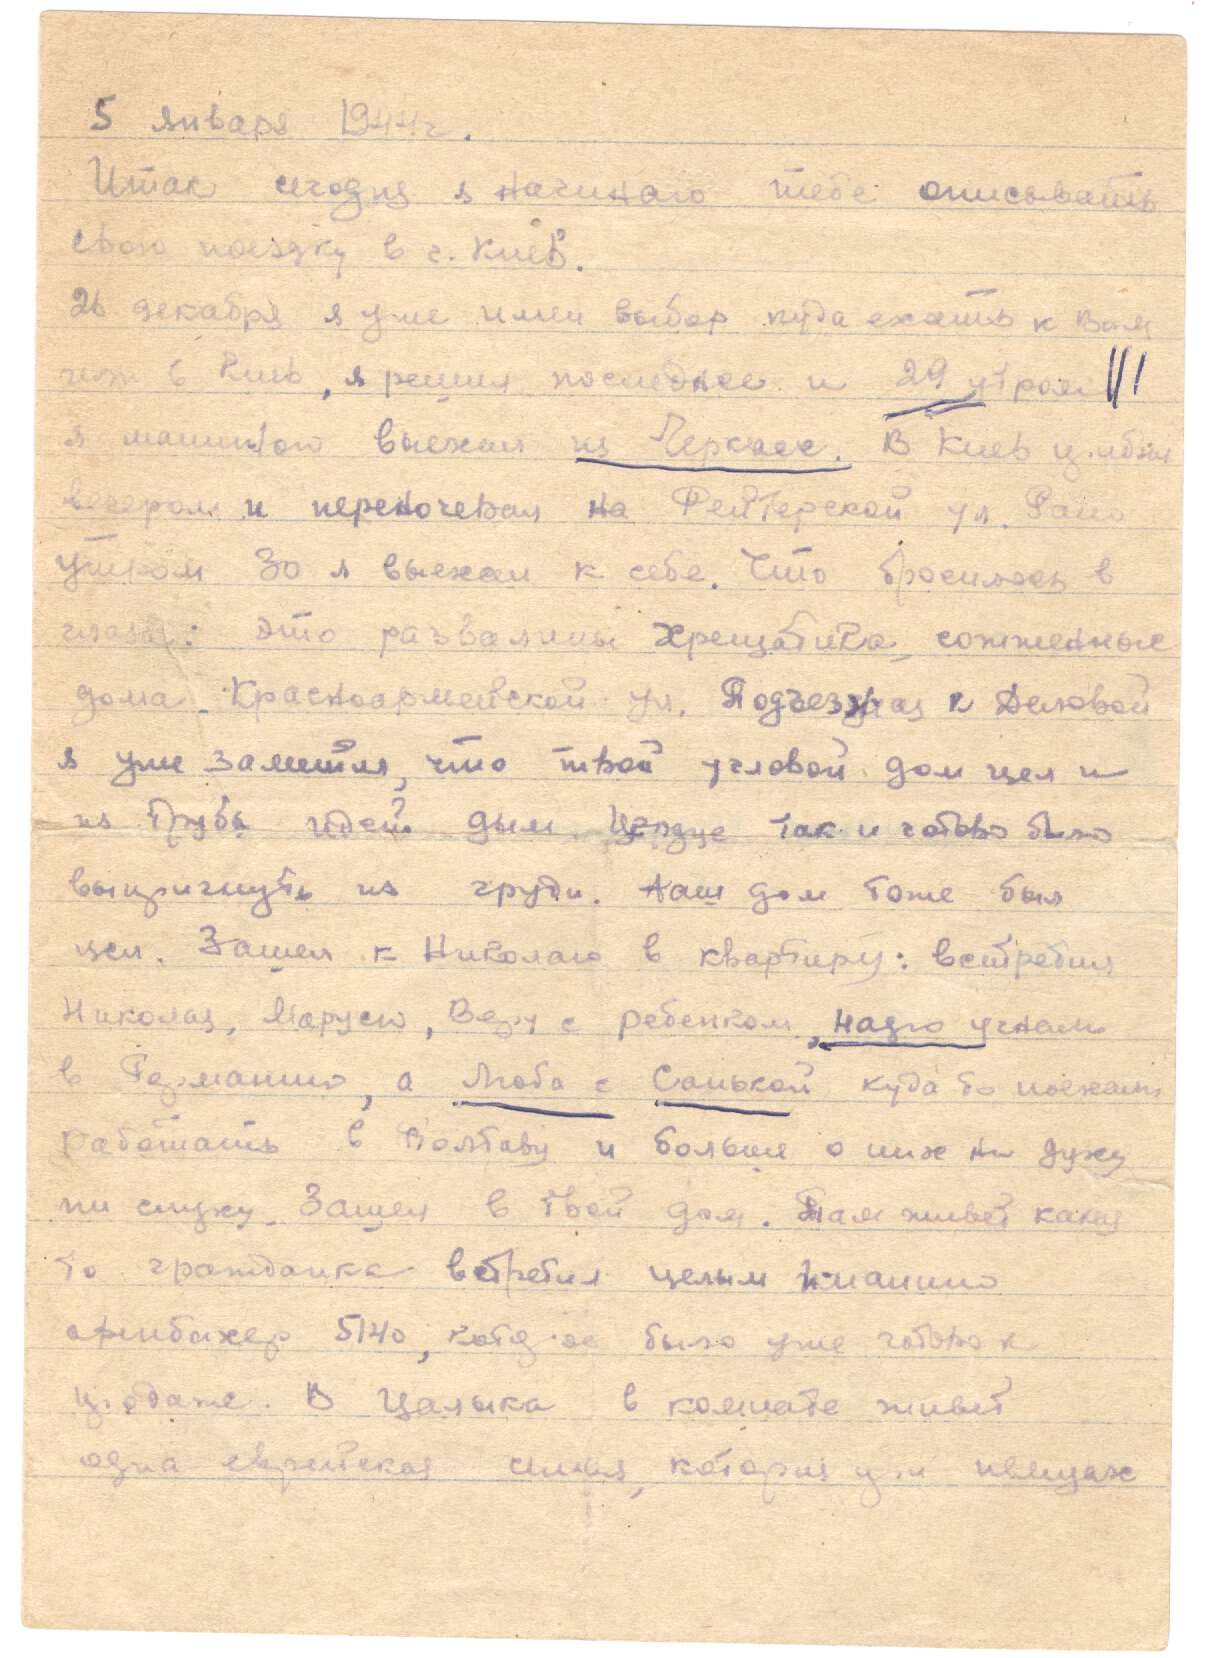 5 января 1944г.
Итак сегодня я начинаю тебе описывать
свою поездку в г. Киев.
26 декабря я уже имел выбор куда ехать к Вам
или в Киев, я решил последнее и 29 утром
я машиною выехал из Черкасс. В Киев прибыл
вечером и переночевал на Рейтерской ул. Рано
утром 30 я выехал к себе. Что бросилось в
глаза: это развалины Хрещатика, сожженные
дома Красноармейской ул. Подъезжая к Деловой
я уже заметил, что твой угловой дом цел и
из трубы идет дым. Сердце так и готово было
выпригнуть из груди. Наш дом тоже был
цел. Зашел к Николаю в квартиру: встретил
Николая, Марусю, Веру с ребенком, Надю угнали
в Германию, а Люба с Санькой куда то поехали
работать в Полтаву и больше о них ни духу
ни слуху. Зашел в твой дом. Там живет какая
то гражданка встретил целым пианино
офенбахер 5140, котор ое было уже готово к
продаже. В Цалыка в комнате живет
одна еврейская семья, которая уже